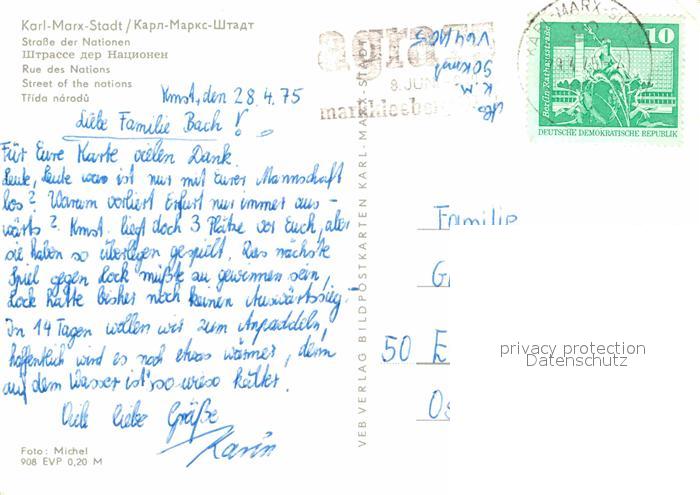 Karl-Marx-Stadt / Карл-Маркс-Штадт
Straße der Nationen
Штрассе дер Национен
Rue des Nations
Street of the nations
Třída národů
Kmst, den 28.4.75
Liebe Familie Bach!
Für Eure Karte vielen Dank.
Leute, Leute was ist nur mit Eurer Mannschaft
los? Warum verliert Erfurt nur immer aus-
wärts? Kmst. liegt doch 3 Plätze vor Euch, aber
sie haben so überlegen gespielt. Das nächste
Spiel gegen Lock müßte zu gewinnen sein,
Lock hatte bisher noch keinen Auswärtssieg.
In 14 Tagen wollen wir zum Anpaddeln,
hoffentlich wird es noch etwas wärmer, denn
auf dem Wasser ist's so wieso kälter.
Viele liebe Grüße
Karin
Foto: Michel
908 EVP 0,20 M
VEB VERLAG BILDPOSTKARTEN KARL-MARX-STADT
agra
8. JUN
markkleeberg
V 64/105
K. M.
KARL-MARX-ST
10
Berlin, Rathausstraße
DEUTSCHE DEMOKRATISCHE REPUBLIK
Familie
G
50 E
privacy protection
Datenschutz